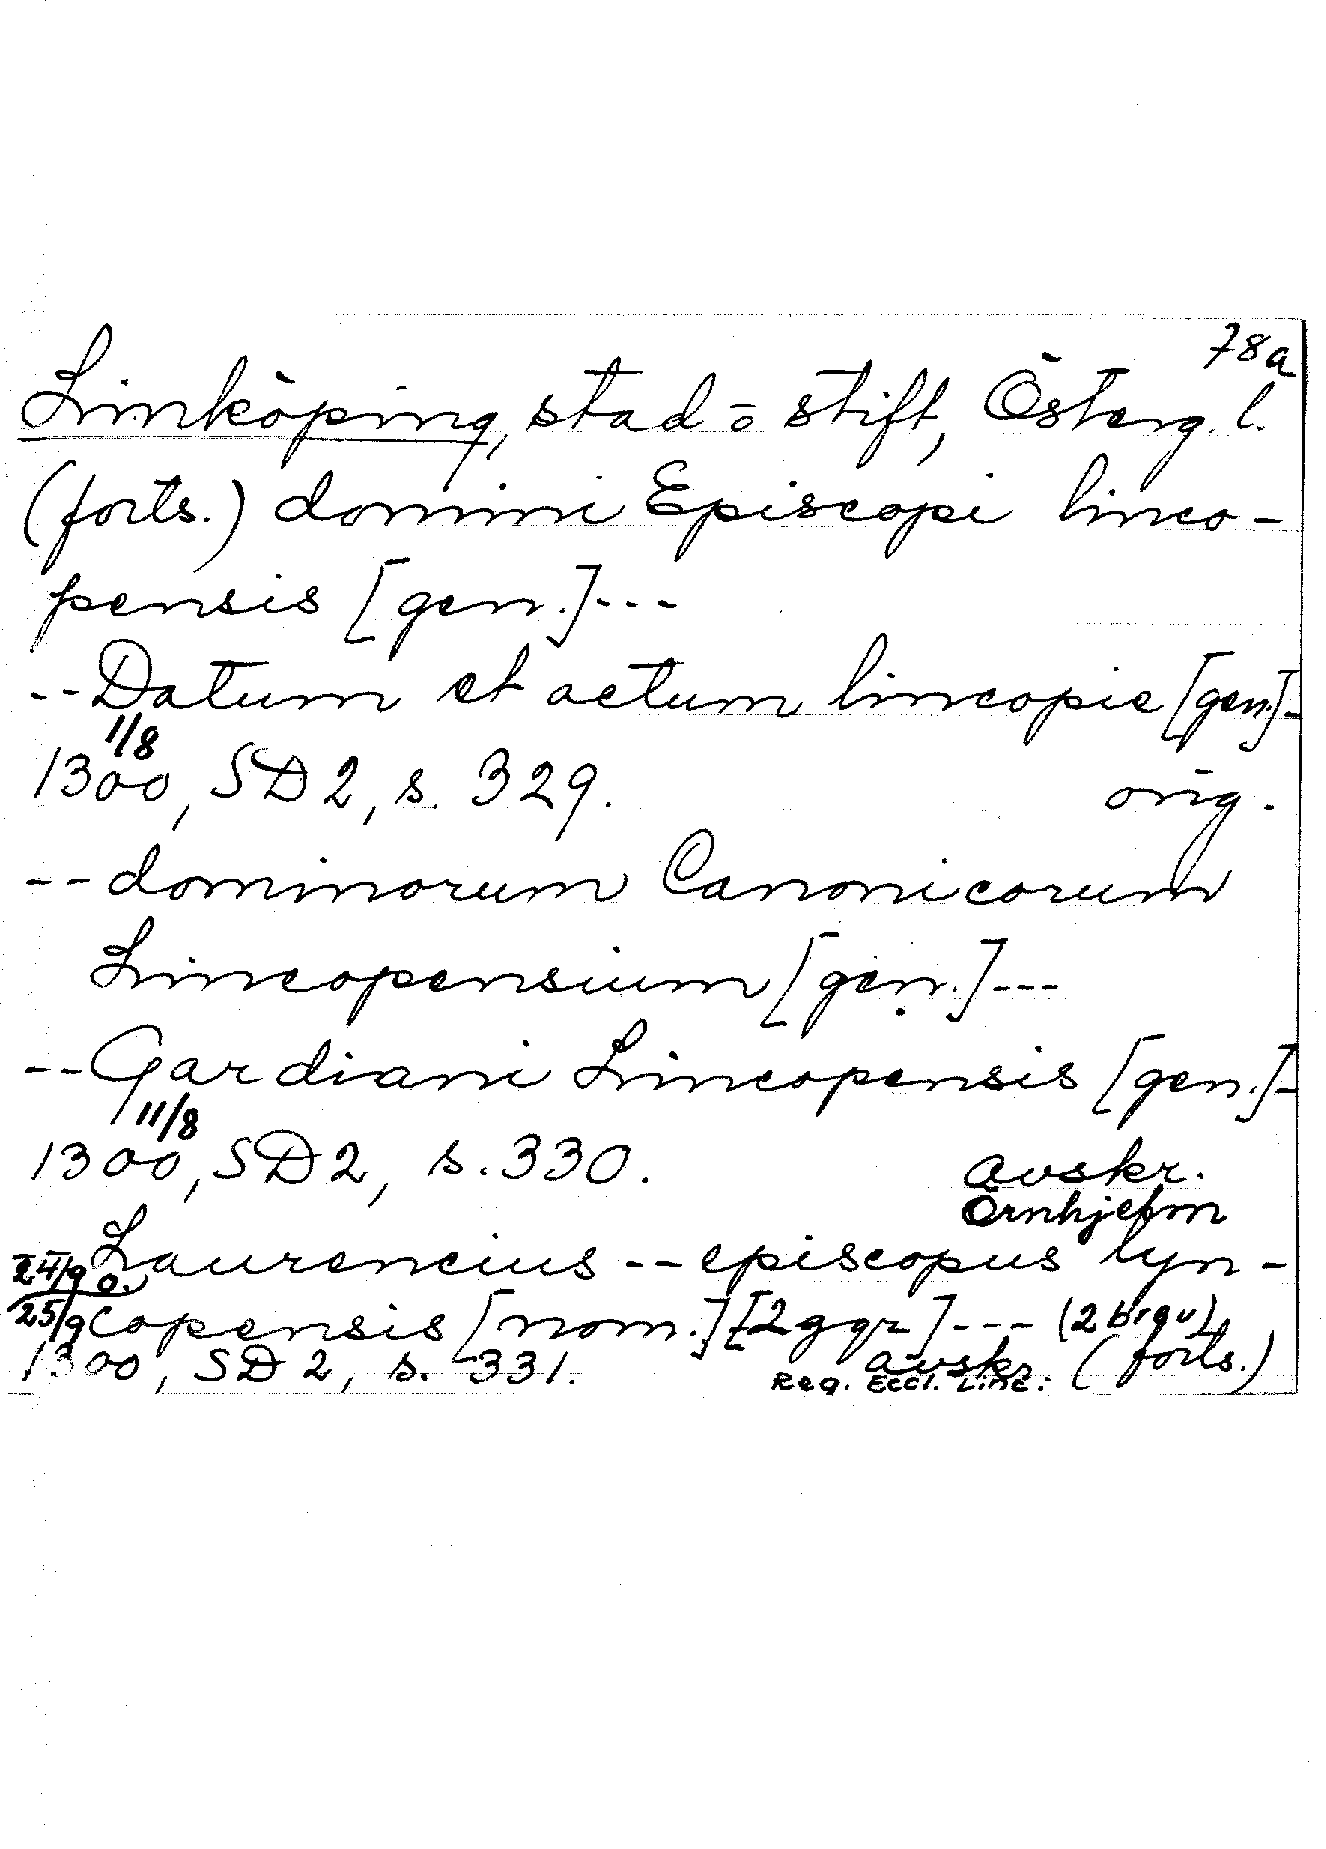 78a
Linköping, stad o stift, Österg. l.
(forts.) domini Episcopi linco-
pensis [gen.]---
--Datum et actum lincopie [gen.]-
1/8
1300, SD 2, s. 329. orig.
--dominorum Canonicorum
Lincopensium [gen.]---
--Gardiani Lincopensis [gen.]-
11/8
1300, SD 2, s. 330. avskr.
Örnhjelm
Laurencius -- episcopus lyn-
24/9 o.
25/9 copensis [nom.] [2 ggr] --- (2 brev)
1300, SD 2, s. 331. avskr. (forts.)
Reg. Eccl. Linc.